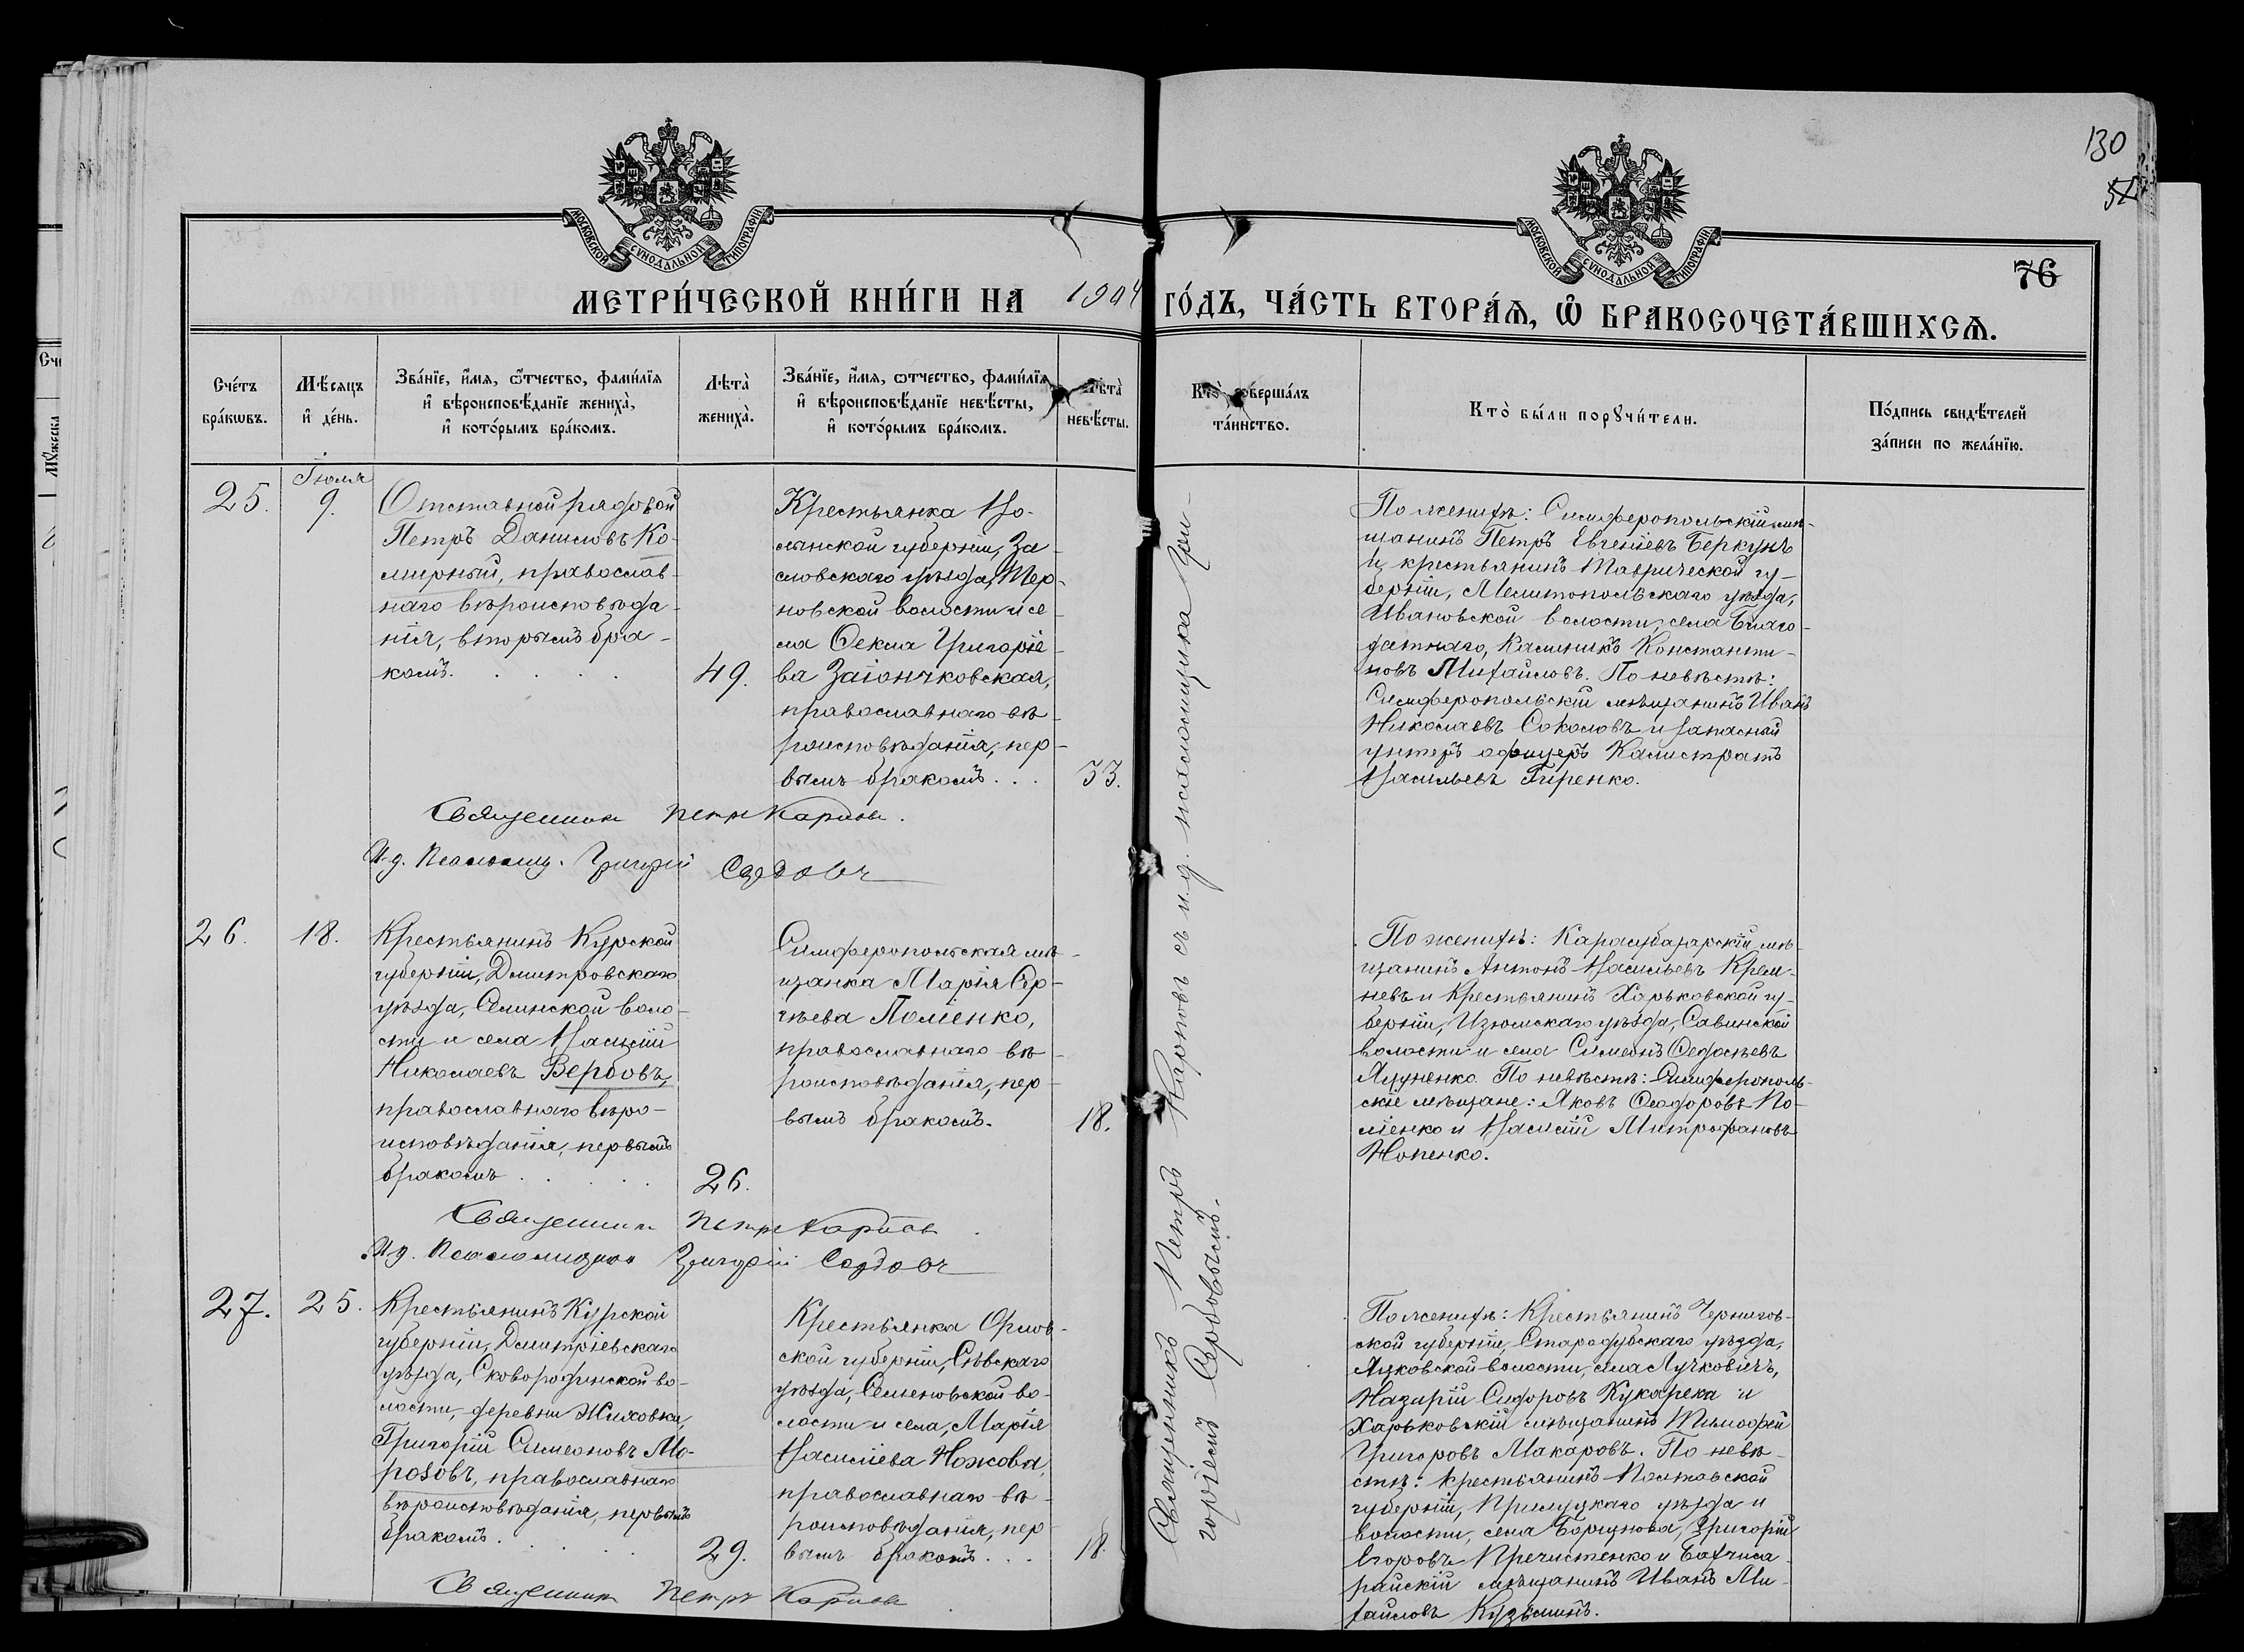 130
76
МОСКОВСКОЙ СѴНОДАЛЬНОЙ ТИПОГРАФІИ
МОСКОВСКОЙ СѴНОДАЛЬНОЙ ТИПОГРАФІИ
МЕТРИ́ЧЕСКОЙ КНИ́ГИ НА 1904 ГО́ДЪ, ЧА́СТЬ ВТОРА́Ѧ, Ѽ БРАКОСОЧЕТА́ВШИХСѦ.
Сче́тъ
бра́кѡвъ.
Мѣ́сяцъ
и҆ де́нь.
Зва́нїе, и҆́мя, ѻ҆́тчество, фами́лїя
и҆ вѣроисповѣ́данїе жениха̀,
и҆ кото́рымъ бра́комъ.
Лѣ́та̀
жениха̀.
Зва́нїе, и҆́мя, ѻ҆́тчество, фами́лїя
и҆ вѣроисповѣ́данїе невѣ́сты,
и҆ кото́рымъ бра́комъ.
Лѣ́та̀
невѣ́сты.
Кто̀ соверша́лъ
та́инство.
Кто̀ бы́ли порꙋчи́тели.
По́дпись свидѣ́телей
за́писи по жела́нїю.
25.
Іюля
9.
Отставной рядовой
Петръ Даниловъ Ко-
мирный, православ-
наго вѣроисповѣда-
нія, вторымъ бра-
комъ.
49.
Крестьянка Во-
лынской губерніи, За-
словскаго уѣзда, Тер-
новской волости и се-
ла Ѳекла Григоріе-
ва Заіончковская,
православнаго вѣ-
роисповѣданія, пер-
вымъ бракомъ...
33.
По женихѣ: Симферопольскій мѣ-
щанинъ Петръ Евгеніевъ Беркунъ
и крестьянинъ Таврической гу-
берніи, Мелитопольскаго уѣзда,
Ивановской волости, села Благо-
датнаго, Калиникъ Константи-
новъ Михайловъ. По невѣстѣ:
Симферопольскій мѣщанинъ Иванъ
Николаевъ Соколовъ и запасный
унтеръ офицеръ Калистратъ
Васильевъ Гиренко.
Священникъ Петръ Карповъ.
И.д. Псаломщ. Григорій Сердовъ
26.
18.
Крестьянинъ Курской
губерніи, Дмитровскаго
уѣзда, Селинской воло-
сти и села Василій
Николаевъ Вербовъ,
православнаго вѣро-
исповѣданія, первымъ
бракомъ
26.
Симферопольская мѣ-
щанка Марія Сер-
гѣева Поліенко,
православнаго вѣ-
роисповѣданія, пер-
вымъ бракомъ.
18.
По женихѣ: Карасубазарскій мѣ-
щанинъ Антонъ Васильевъ Крем-
невъ и крестьянинъ Харьковской гу-
берніи, Изюмскаго уѣзда, Савинской
волости и села Симеонъ Ѳедосѣевъ
Яцуненко. По невѣстѣ: Симферополь-
скіе мѣщане: Яковъ Ѳеодоровъ По-
ліенко и Василій Митрофановъ
Нопенко.
Священникъ Петръ Карповъ
И.д. Псаломщика Григорій Сердовъ
27.
25.
Крестьянинъ Курской
губерніи, Дмитріевскаго
уѣзда, Сковородинской во-
лости, деревни Жиховки,
Григорій Симеоновъ Мо-
розовъ, православнаго
вѣроисповѣданія, первымъ
бракомъ.
29.
Крестьянка Орлов-
ской губерніи, Сѣвскаго
уѣзда, Семеновской во-
лости и села, Марія
Василіева Ножова,
православнаго вѣ-
роисповѣданія, пер-
вымъ бракомъ...
18.
По женихѣ: Крестьянинъ Чернигов-
ской губерніи, Стародубскаго уѣзда,
Лужковской волости, села Лучковичъ,
Назарій Сидоровъ Кукарека и
Харьковскій мѣщанинъ Тимофей
Григоровъ Макаровъ. По невѣ-
стѣ: крестьянинъ Полтавской
губерніи, Прилуцкаго уѣзда и
волости, села Боршнова, Григорій
Егоровъ Пречистенко и Бахчиса-
райскій мѣщанинъ Иванъ Ми-
хайловъ Кузьминъ.
Священникъ Петръ Карповъ
Священникъ Петръ Карповъ съ и.д. псаломщика Гри-
горіемъ Сербовымъ.